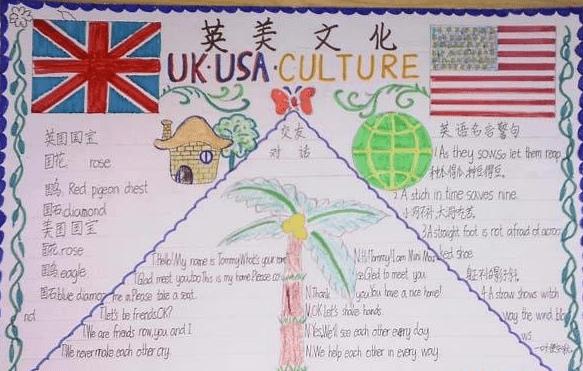 英美文化
UK·USA·CULTURE
英国国宝
国花 rose
国鸟 Red pigeon chest
国石 diamond
美国国宝
国花 rose
国鸟 eagle
国石 blue
交友
对话
T.Hello! My name is Tommy. What's your
T.Glad meet you, too. This is my home. Please
me in. Please take a seat.
T.Let's be friends, OK?
T.We are friends now, you and I
T.We never make each other cry.
N.Hi! Tommy! I am Mini
Glad to meet you.
N.Thank you. You have a nice home!
N.OK. Let's shake hands.
N.Yes. We'll see each other every day.
N.We help each other in every way.
英语名言警句
1 As they sow, so let them reap
种瓜得瓜,种豆得豆。
2 A stich in time saves nine.
小洞不补,大洞吃苦。
3 A straight foot is not afraid of a crooked shoe
4 A straw shows witch
way the wind